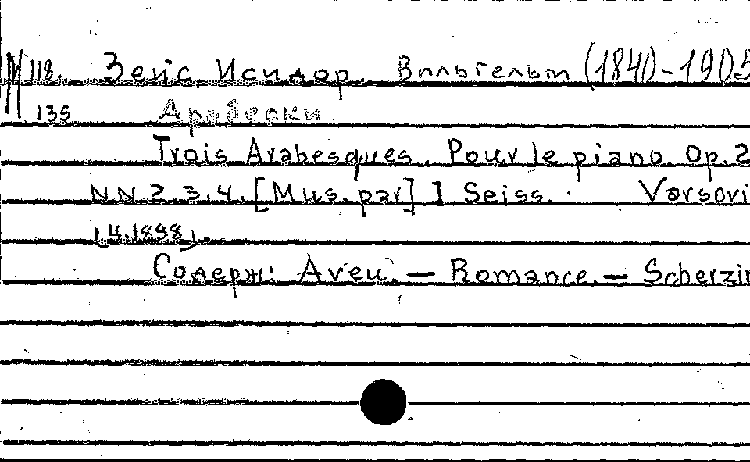 118. Зейс, Исидор Вильгельм (1840-1905
135 Арабески
Trois Arabesques. Pour le piano Op. 2
NN 2. 3. 4. [Mus. par] I Seiss. Varsovi
Содерж: Aveu. — Romance. — Scherzin